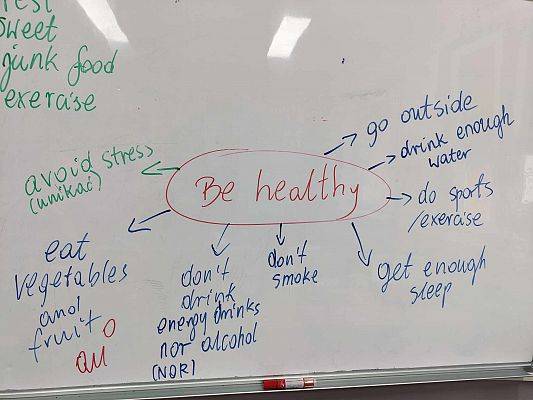 rest
sweet
junk food
exercise
go outside
drink enough
water
avoid stress
(unikać)
Be healthy
do sports
/exercise
eat
vegetables
and
fruit
au
don't
drink
energy drinks
nor alcohol
(NOR)
don't
smoke
get enough
sleep